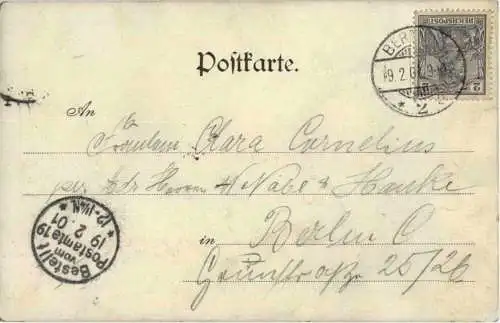 Postkarte.
An
Fräulein Clara Cornelius
per Adr Herren Nabe & Hanke
in Berlin C
Grünstraße 25/26
REICHSPOST
2
BER
19.2.01
* 2
Bestellt
vom
Postamte 19
19 2.01
*12-1¼N*